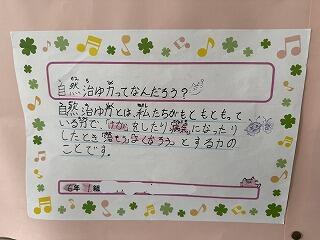 自然治ゆ力ってなんだろう?
自然治ゆ力とは、私たちがもともともって
いる力で、けがをしたり病気になったり
したとき落ちつきなおろうとする力の
ことです。
6年1組